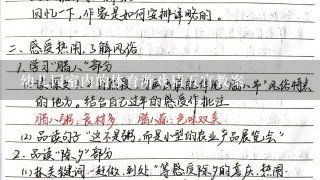 回忆一下，作家是如何安排详略的。
二、感受热闹，了解风俗
1. 学习“腊八”部分
幼儿园室内的体育游戏揪五官教案
的地方。结合自己过年的感受作批注
腊八粥:食材多 腊八蒜:色味双美
(2) 品读句子“这不是粥,而是小型的农业产品展览会”
2. 品读“除夕”部分
(1) 抓关键词“赶做、到处”等感受除夕的喜庆、热闹